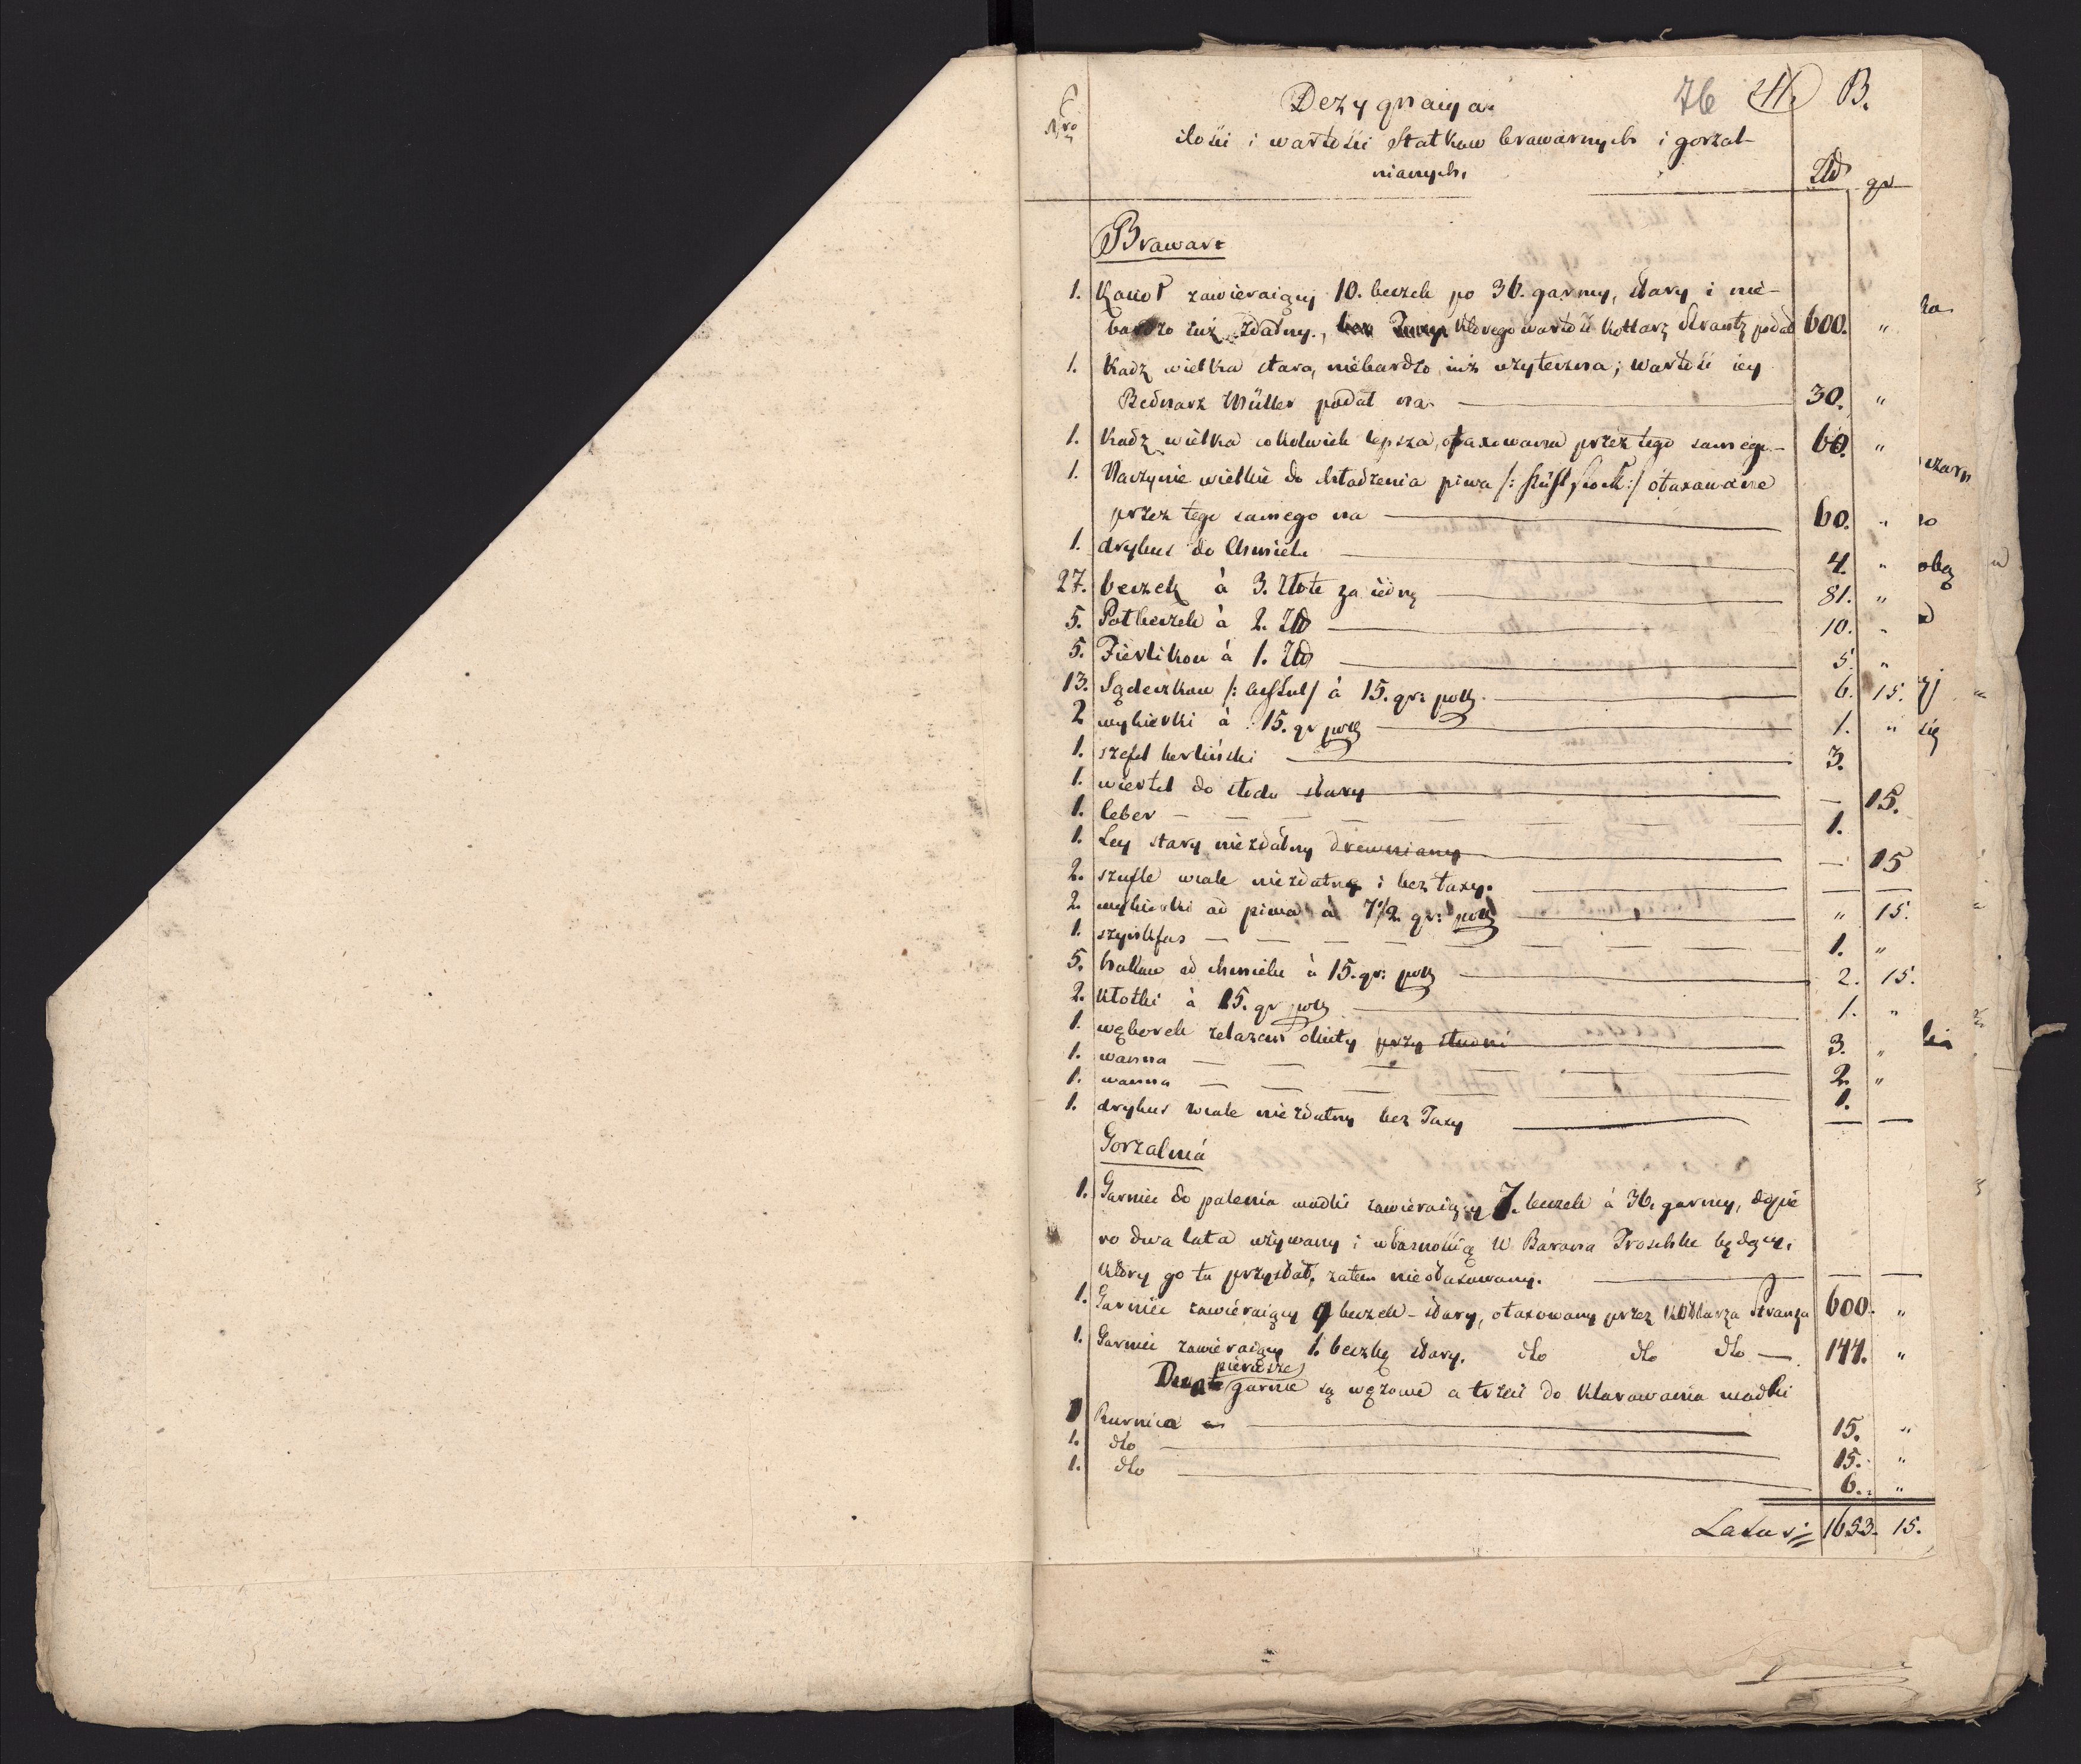 76 41. B.
Nro
Dezygnacya
ilości i wartości Statkow browarnych i gorzal-
nianych.
Złł gr
Browar:
1. Kocioł zawieraiący 10. beczek po 36. garncy, stary i nie-
bardzo iuż zdatny, ktorego wartość Kotlarz Krantz podał 600. "
1. Kadź wielka stara, niebardzo iuż użyteczna; wartość iey
Bednarz Müller podał na 30. "
1. Kadź wielka cokolwiek lepsza, otaxowana przez tego samego 60. "
1. Naczynie wielkie do chłodzenia piwa /: Kühlstock :/ otaxowane
przez tego samego na 60. "
1. drybus do Chmielu 4. "
27. beczek à 3. Złote za iedną 81. "
5. Połbeczek à 2. Złł 10. "
5. Fierlikow à 1. Złł 5. "
13. Sądeczkow à 15. gr: pol 6. 15.
2 wybierki à 15. gr pol 1. "
1. szefel berliński 3.
1. wiertel do słodu stary — 15.
1. leber 1.
1. Ley stary niezdatny drewniany — 15
2. szufle wcale niezdatne i bez taxy. — —
2. wybierki od piwa à 7 1/2 gr: pol " 15.
1. szynkfas 1. "
5. hakow od chmielu à 15. gr: pol 2. 15.
2. kłotki à 15. gr pol 1. "
1. węborek żelazem okuty przy studni 3. "
1. wanna 2. "
1. wanna 1.
1. drybus wcale niezdatny bez Taxy — —
Gorzalnia
1. Garniec do palenia wodki zawieraiący 7. beczek à 36. garncy, dopie
ro dwa lata używany i własnością W Barona Troschke będący,
ktory go tu przysłał, zatem nieotaxowany. — —
1. Garniec zawieraiący 9 beczek - stary, otaxowany przez Kotlarza Krantza 600. "
1. Garniec zawieraiący 1. beczkę stary. dto dto dto 144. "
pierwsze
Dwa garnce są wężowe a trzeci do klarowania wodki
1 Rurnica 15. "
1. dto 15. "
1. dto 6. "
Latus: 1653. 15.